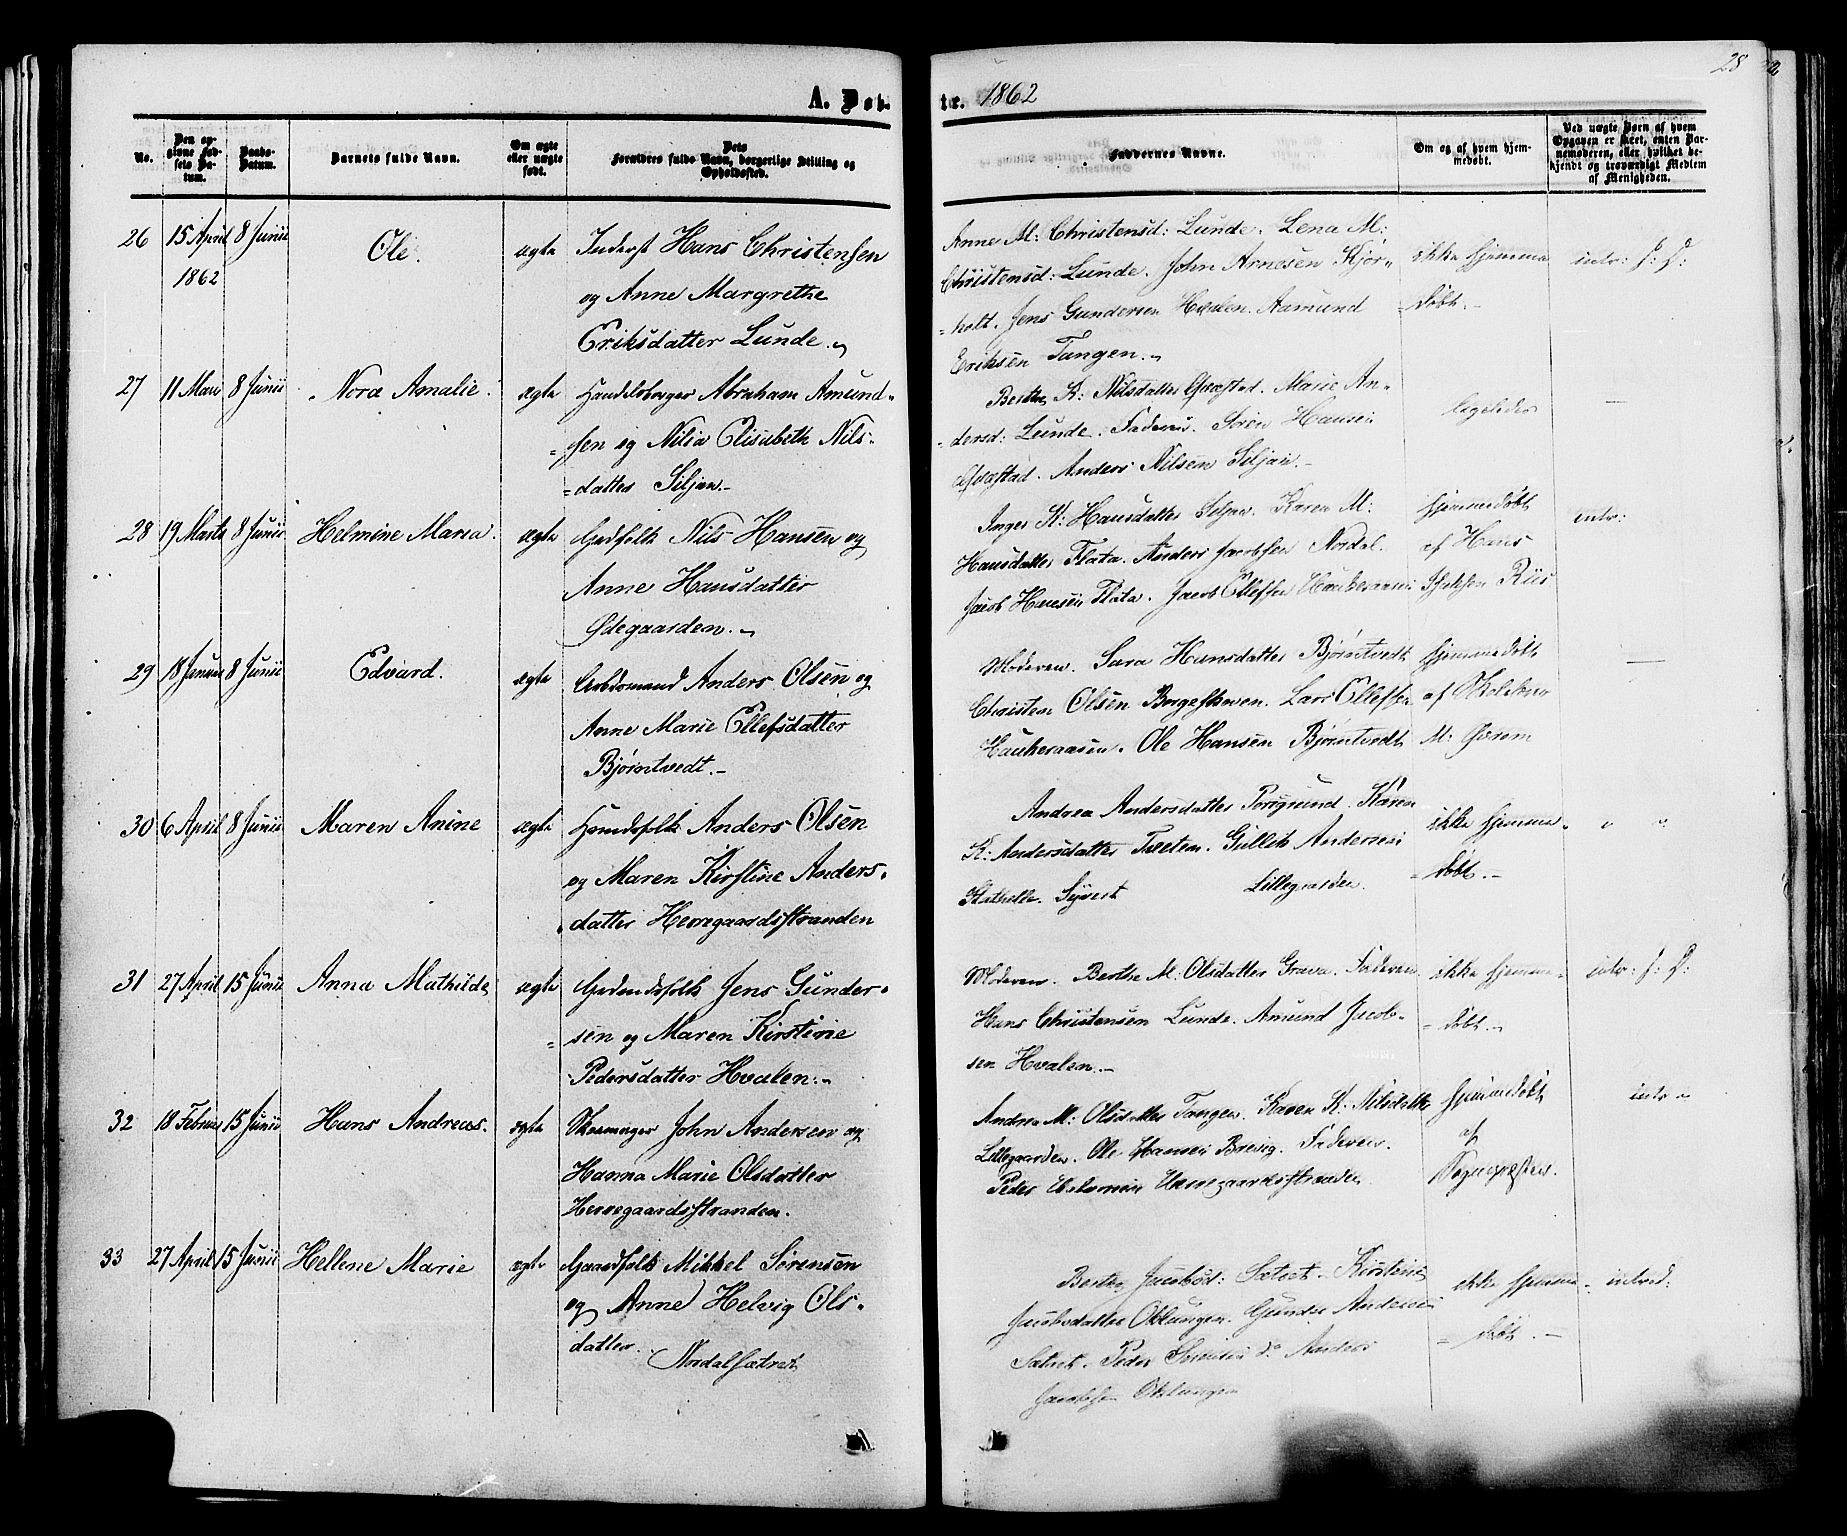 28
A. Døb-
te. 1862
No.
Den opgivne Fødsels Datum.
Daabs-Datum.
Barnets fulde Navn.
Om ægte eller uægte født.
Dets Forældres fulde Navn, borgerlige Stilling og Opholdssted.
Faddernes Navne.
Om og af hvem hjemmedøbt.
Ved uægte Børn af hvem Opgaven er skeet, enten Barnemoderen, eller hvilket bekjendt og troværdigt Medlem af Menigheden.
26 15 April 1862 8 Junii Ole. ægte
Inderst Hans Christensen
og Anne Margrethe
Eriksdatter Lunde.
Anne M: Christensd: Lunde. Lena M:
Christensd: Lunde. John Arnesen Kjør-
-holt. Jens Gundersen Hvalen. Aamund
Eriksen Tangen.
ikke hjemme
-døbt.-
intr: J: D:
27 11 Mars 8 Junii Nora Amalie. ægte
Handelsborger Abraham Amund-
-sen og Nilia Elisabeth Nils-
-datter Siljan.-
Berthe K: Nilsdatter Marie An-
-dersd: Lunde. Faderen. Søren Hansen
Anders Nilsen Siljan.-
ligeledes
—
28 19 Marts 8 Junii Helmine Maria. ægte
Gdfolk Nils Hansen og
Anne Hansdatter
Ødegaarden.
Inger K: Hansdatter Siljan. Karen M.
Hansdatter Flata. Anders Jacobsen Nordal.
Jacob Hansen Flata. Jacob Ellefsen Haukeraasen
hjemmedøbt
af Hans
Riis
intr:
29 18 Januar 8 Junii Edvard. ægte
Arbdsmand Anders Olsen og
Anne Marie Ellefsdatter
Bjørntvedt.-
Moderen. Sara Hansdatter Bjørntvedt
Christen Olsen Borgeskoven. Lars Ellefsen
Haukeraasen. Ole Hansen Bjørntvedt
hjemmedøbt
af Skoleknr
M:
—
30 6 April 8 Junii Maren Anine ægte
Huusfolk Anders Olsen
og Maren Kirstine Anders-
datter Herregaardsstranden
Andrea Andersdatter Porsgrund. Karen
K: Andersdatter Tveten. Gullik Andersen
Stathelle. Syvert Lillegaarden.
ikke hjemme-
-døbt.-
" "
31 27 April 15 Junii Anna Mathilde ægte
Jens Gunder-
-sen og Maren Kirstine
Pedersdatter Hvalen.-
Moderen. Berthe M: Olsdatter Grava. Faderen
Hans Christensen Lunde. Amund Jacob-
sen Hvalen.-
ikke hjemme-
-døbt.-
intr: J: D:
32 18 Februar 15 Junii Hans Andreas. ægte
Skomager John Andersen og
Hanna Marie Olsdatter
Herregaardsstranden.
Andrea M: Olsdatter Tangen. Karen K: Nilsdatter
Lillegaarden. Ole Hansen Brevig. Faderen.
Peder Herregaardsstranden
hjemmedøbt
af
Sognepræsten.
intr
33 27 April 15 Junii Hellene Marie ægte
Gaardfolk Mikkel Sørensen
og Anne Helvig Ols-
datter.
Nordalsætret
Berthe Jacobsd: Sætret. Kirstine
Jacobsdatter Oklungen. Gunder Andersen
Sætret. Peder Sørensen do Anders
Jacobsen Oklungen
ikke hjemme-
-døbt.-
introd: